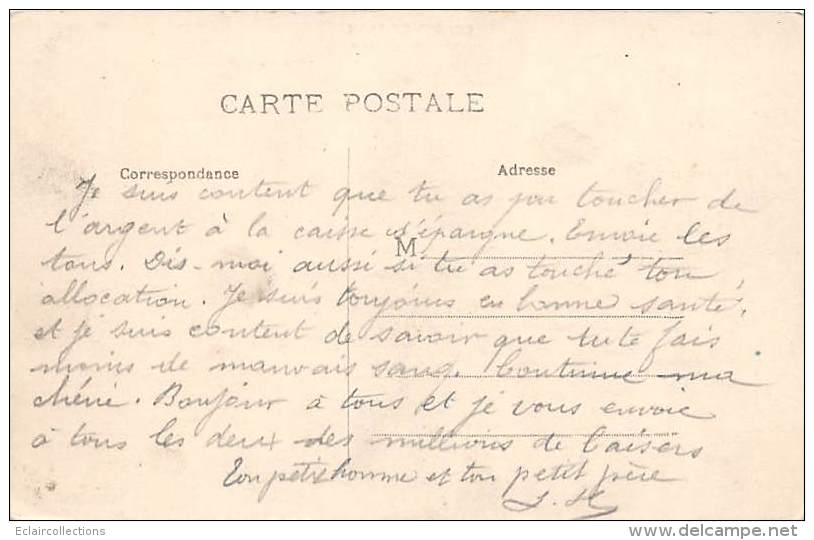 CARTE POSTALE
Correspondance
Adresse
M
Je suis content que tu as pu toucher de
l'argent à la caisse d'épargne. Envoie les
tous. Dis-moi aussi si tu as touché ton
allocation. Je suis toujours en bonne santé,
et je suis content de savoir que tu te fais
moins de mauvais sang. Continue ma
chérie. Bonjour à tous et je vous envoie
à tous les deux des millions de baisers
Ton petit homme et ton petit père
Eclaircollections
delcampe.net